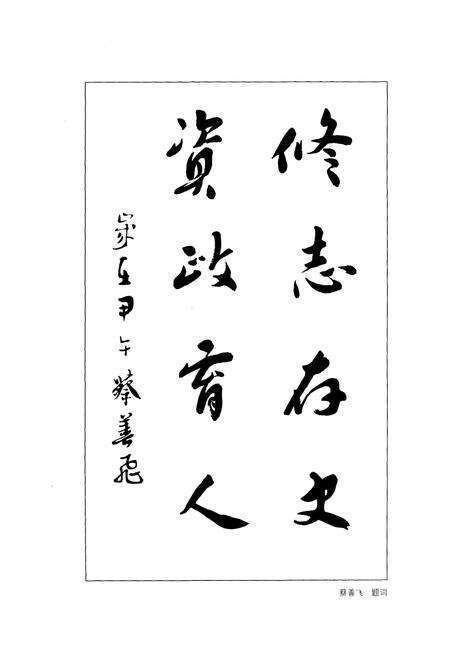 修志存史
資政育人
歲在甲午蔡善飛
蔡善飞 题词